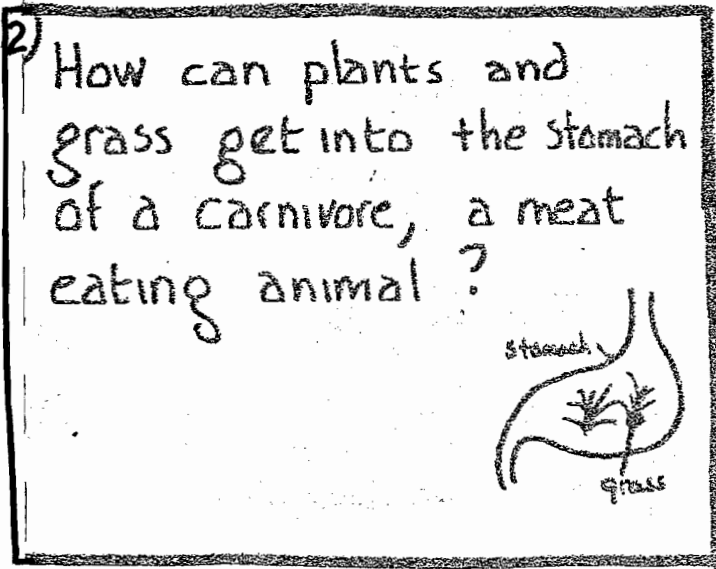 2)
How can plants and
grass get into the stomach
of a carnivore, a meat
eating animal ?
stomach
grass